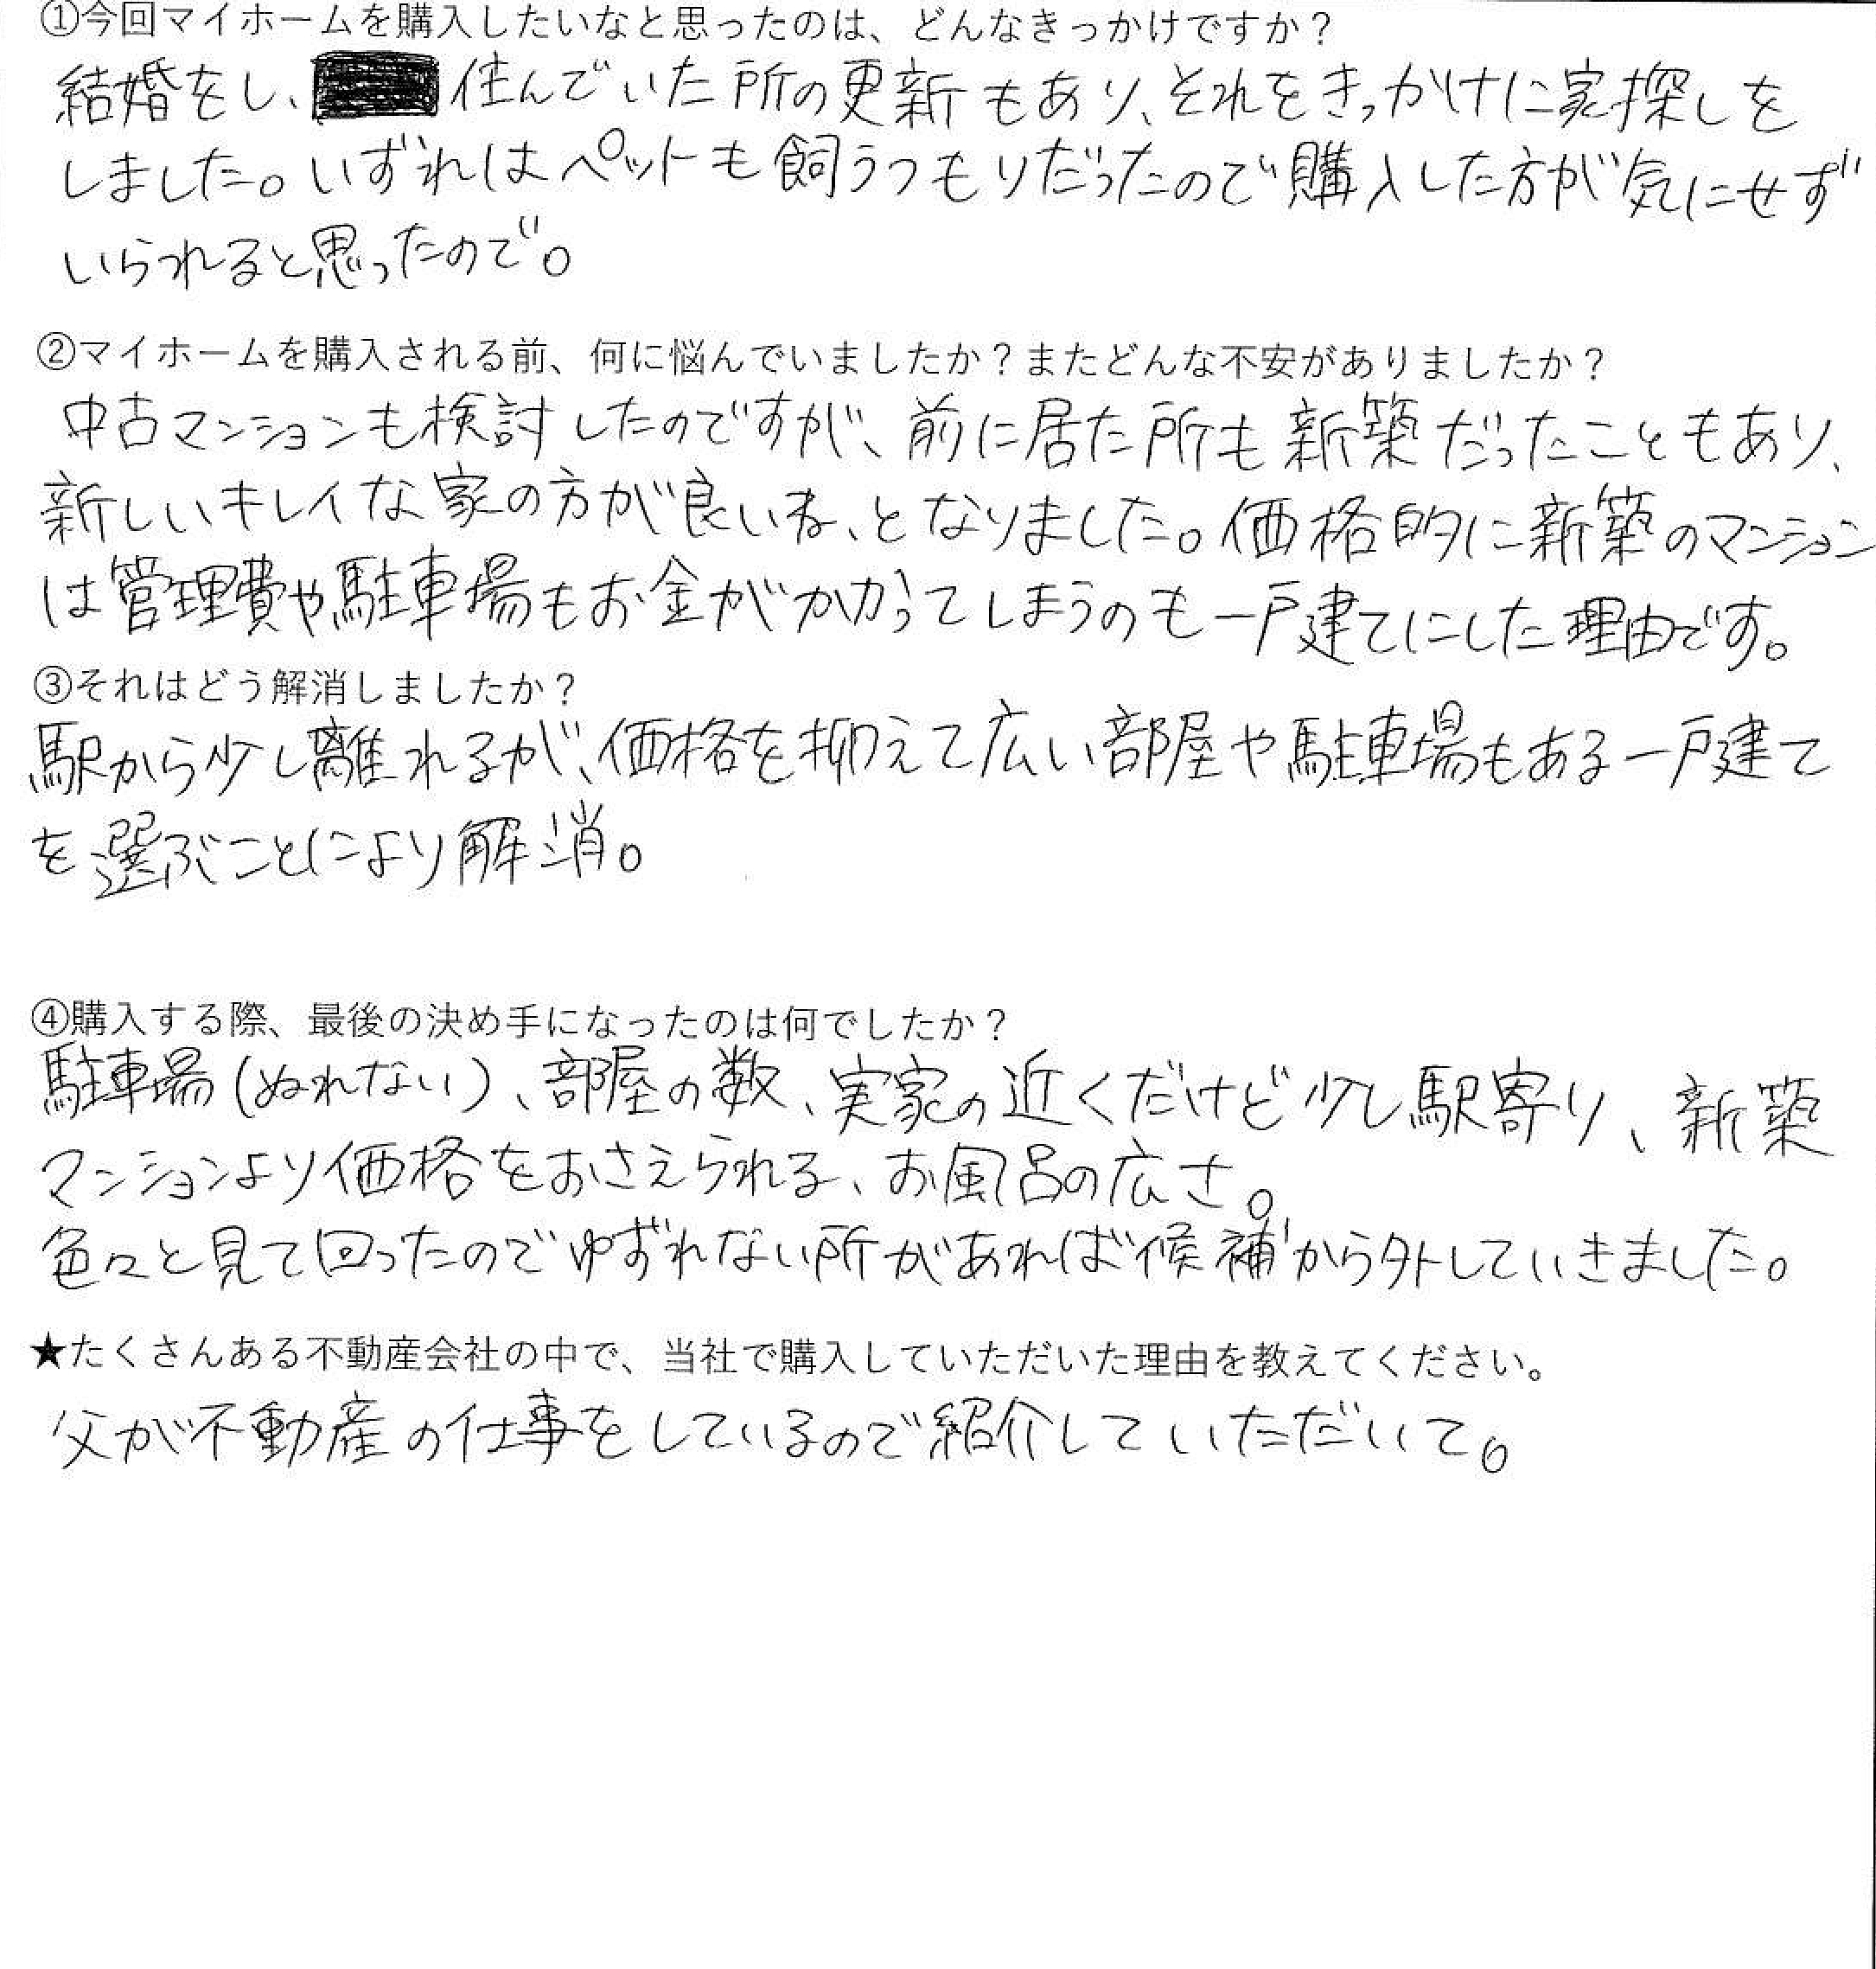 ①今回マイホームを購入したいなと思ったのは、どんなきっかけですか？
結婚をし、住んでいた所の更新もあり、それをきっかけに家探しを
しました。いずれはペットも飼うつもりだったので購入した方が気にせず
いられると思ったので。
②マイホームを購入される前、何に悩んでいましたか？またどんな不安がありましたか？
中古マンションも検討したのですが、前に居た所も新築だったこともあり、
新しいキレイな家の方が良いね、となりました。価格的に新築のマンション
は管理費や駐車場もお金がかかってしまうのも一戸建てにした理由です。
③それはどう解消しましたか？
駅から少し離れるが、価格を抑えて広い部屋や駐車場もある一戸建て
を選ぶことにより解消。
④購入する際、最後の決め手になったのは何でしたか？
駐車場（ぬれない）、部屋の数、実家の近くだけど少し駅寄り、新築
マンションより価格をおさえられる、お風呂の広さ。
色々と見て回ったのでゆずれない所があれば候補から外していきました。
★たくさんある不動産会社の中で、当社で購入していただいた理由を教えてください。
父が不動産の仕事をしているので紹介していただいて。